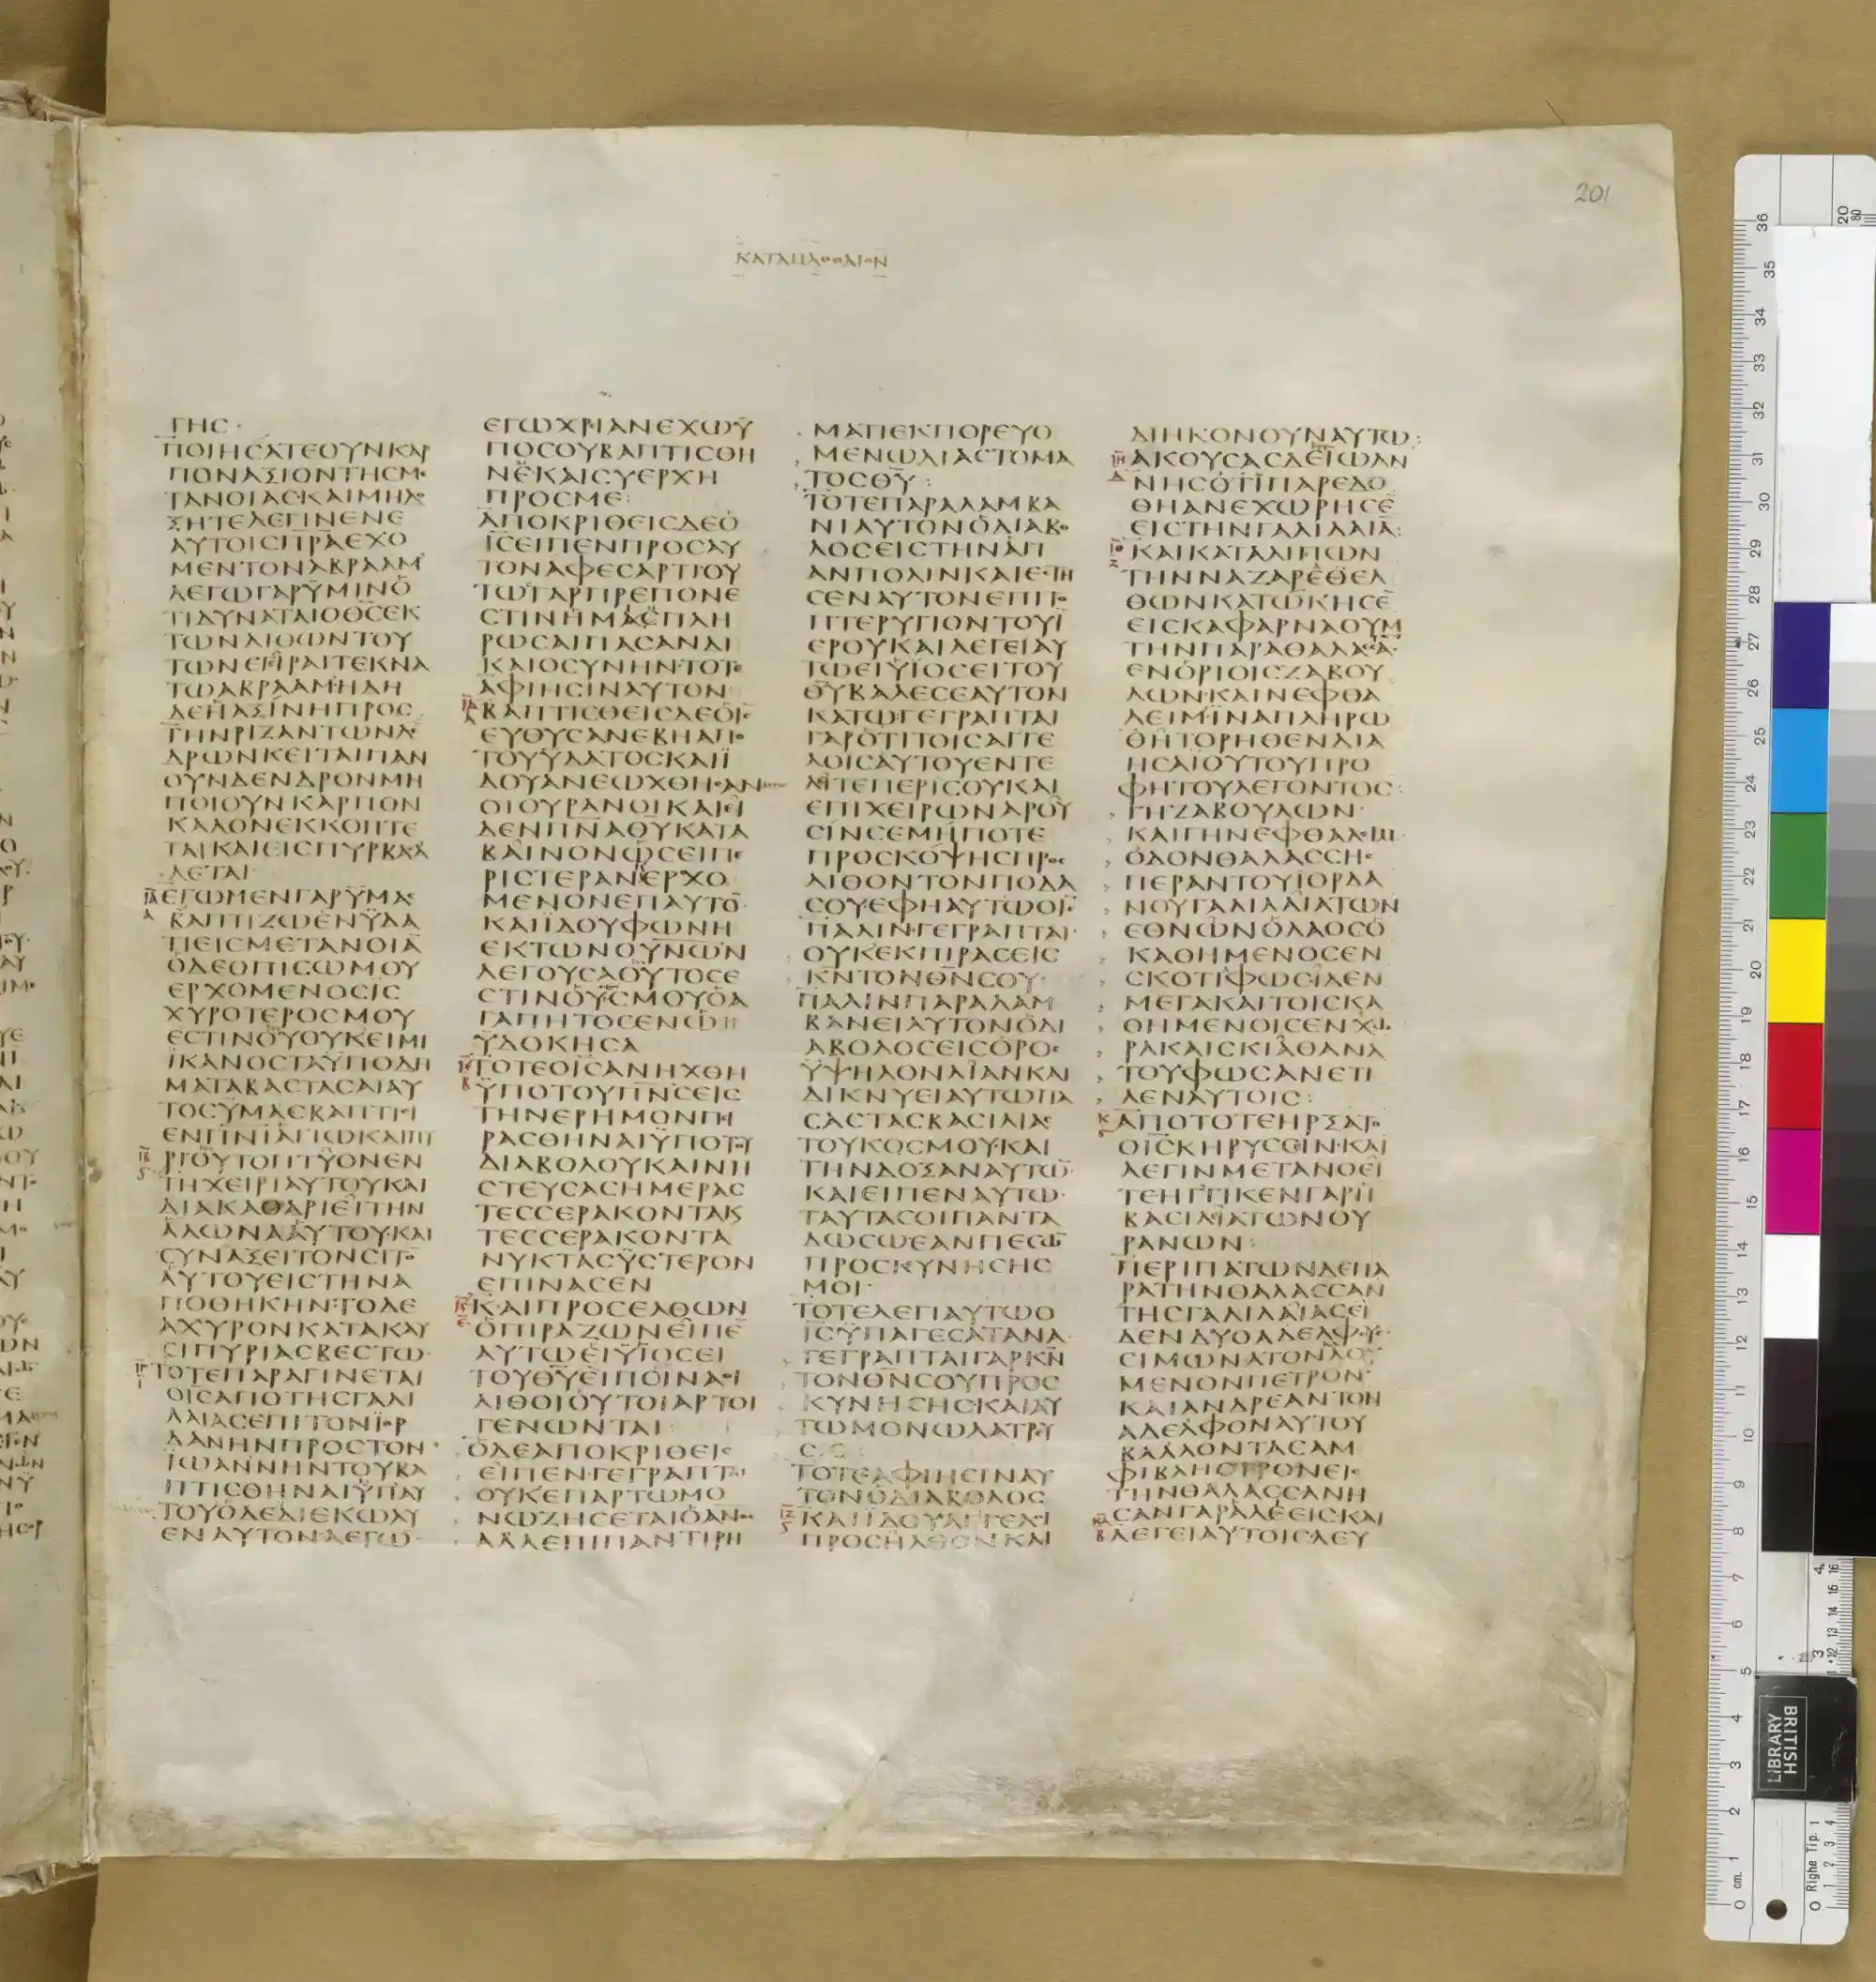 201
ΚΑΤΑΜΑΘΘΑΙΟΝ
ΓΗC·
ΠΟΙΗCΑΤΕΟΥΝΚΑΡ
ΠΟΝΑΞΙΟΝΤΗCΜΕ
ΤΑΝΟΙΑCΚΑΙΜΗΔΟ
ΞΗΤΕΛΕΓΙΝΕΝΕ
ΑΥΤΟΙCΠΡΑΕΧΟ
ΜΕΝΤΟΝΑΒΡΑΑΜ
ΛΕΓΩΓΑΡΫΜΙΝΟ
ΤΙΔΥΝΑΤΑΙΟΘC̅ΕΚ
ΤΩΝΛΙΘΩΝΤΟΥ
ΤΩΝΕΓΙΡΑΙΤΕΚΝΑ
ΤΩΑΒΡΑΑΜΗΔΗ
ΔΕΗΑΞΙΝΗΠΡΟC
ΤΗΝΡΙΖΑΝΤΩΝΔΕ
ΔΡΩΝΚΕΙΤΑΙΠΑΝ
ΟΥΝΔΕΝΔΡΟΝΜΗ
ΠΟΙΟΥΝΚΑΡΠΟΝ
ΚΑΛΟΝΕΚΚΟΠΤΕ
ΤΑΙΚΑΙΕΙCΠΥΡΒΑΛ
ΛΕΤΑΙ
ΕΓΩΜΕΝΓΑΡΫΜΑC
ΒΑΠΤΙΖΩΕΝΫΔΑ
ΤΙΕΙCΜΕΤΑΝΟΙΑ̅
ΟΔΕΟΠΙCΩΜΟΥ
ΕΡΧΟΜΕΝΟCΙC
ΧΥΡΟΤΕΡΟCΜΟΥ
ΕCΤΙΝΟΥΟΥΚΕΙΜΙ
ΪΚΑΝΟCΤΑΫΠΟΔΗ
ΜΑΤΑΒΑCΤΑCΑΙΑΥ
ΤΟCΫΜΑCΒΑΠΤΙCΙ
ΕΝΠΝΙΑΓΙΩΚΑΙΠΥ
ΡΙΟΥΤΟΠΤΥΟΝΕΝ
ΤΗΧΕΙΡΙΑΥΤΟΥΚΑΙ
ΔΙΑΚΑΘΑΡΙΕΙΤΗΝ
ΑΛΩΝΑΑΥΤΟΥΚΑΙ
CΥΝΑΞΕΙΤΟΝCΙΤΟ̅
ΑΥΤΟΥΕΙCΤΗΝΑ
ΠΟΘΗΚΗΝΤΟΔΕ
ΑΧΥΡΟΝΚΑΤΑΚΑΥ
CΙΠΥΡΙΑCΒΕCΤΩ·
ΤΟΤΕΠΑΡΑΓΙΝΕΤΑΙ
ΟΙ̅C̅ΑΠΟΤΗCΓΑΛΙ
ΛΑΙΑCΕΠΙΤΟΝΪΟΡ
ΔΑΝΗΝΠΡΟCΤΟΝ
ΪΩΑΝΝΗΝΤΟΥΒΑ
ΠΤΙCΘΗΝΑΙΫΠΑΥ
ΤΟΥΟΔΕΔΙΕΚΩΛΥ
ΕΝΑΥΤΟΝΛΕΓΩ̅
ΕΓΩΧΡΙΑΝΕΧΩΫ
ΠΟCΟΥΒΑΠΤΙCΘΗ
ΝΕΚΑΙCΥΕΡΧΗ
ΠΡΟCΜΕ:
ΑΠΟΚΡΙΘΕΙCΔΕΟ
Ι̅C̅ΕΙΠΕΝΠΡΟCΑΥ
ΤΟΝΑΦΕCΑΡΤΙΟΥ
ΤΩΓΑΡΠΡΕΠΟΝΕ
CΤΙΝΗΜΑCΠΛΗ
ΡΩCΑΙΠΑCΑΝΔΙ
ΚΑΙΟCΥΝΗΝΤΟΤΕ
ΑΦΙΗCΙΝΑΥΤΟΝ
ΒΑΠΤΙCΘΕΙCΔΕΟΙ̅C̅
ΕΥΘΥCΑΝΕΒΗΑΠΟ
ΤΟΥΫΔΑΤΟCΚΑΙΪ
ΔΟΥΑΝΕΩΧΘΗCΑΝ
ΟΙΟΥΡΑΝΟΙΚΑΙΕΙ
ΔΕΝΠΝ̅ΑΘ̅Υ̅ΚΑΤΑ
ΒΑΙΝΟΝΩCΕΙΠΕ
ΡΙCΤΕΡΑΝΕΡΧΟ
ΜΕΝΟΝΕΠΑΥΤΟ̅
ΚΑΙΪΔΟΥΦΩΝΗ
ΕΚΤΩΝΟΥΝΩΝ
ΛΕΓΟΥCΑΟΥΤΟCΕ
CΤΙΝΟΥ̅C̅ΜΟΥΟΑ
ΓΑΠΗΤΟCΕΝΩΗ
ΫΔΟΚΗCΑ
ΤΟΤΕΟΙ̅C̅ΑΝΗΧΘΗ
ΫΠΟΤΟΥΠ̅Ν̅C̅ΕΙC
ΤΗΝΕΡΗΜΟΝΠΙ
ΡΑCΘΗΝΑΙΫΠΟΤΟΥ
ΔΙΑΒΟΛΟΥΚΑΙΝΗ
CΤΕΥCΑCΗΜΕΡΑC
ΤΕCCΕΡΑΚΟΝΤΑΚ
ΤΕCCΕΡΑΚΟΝΤΑ
ΝΥΚΤΑCΫCΤΕΡΟΝ
ΕΠΙΝΑCΕΝ
ΚΑΙΠΡΟCΕΛΘΩΝ
ΟΠΙΡΑΖΩΝΕΙΠΕ̅
ΑΥΤΩΕΙΫΙΟCΕΙ
ΤΟΥΘ̅Υ̅ΕΙΠΟΙΝΑΟΙ
ΛΙΘΟΙΟΥΤΟΙΑΡΤΟΙ
ΓΕΝΩΝΤΑΙ
ΟΔΕΑΠΟΚΡΙΘΕΙC
ΕΙΠΕΝΓΕΓΡΑΠΤΑΙ
ΟΥΚΕΠΑΡΤΩΜΟ
ΝΩΖΗCΕΤΑΙΟΑΝΟC
ΑΛΛΕΠΙΠΑΝΤΙΡΗ
ΜΑΤΙΕΚΠΟΡΕΥΟ
ΜΕΝΩΔΙΑCΤΟΜΑ
ΤΟCΘ̅Υ̅:
ΤΟΤΕΠΑΡΑΛΑΜΒΑ
ΝΙΑΥΤΟΝΟΔΙΑΒΟ
ΛΟCΕΙCΤΗΝΑΓΙ
ΑΝΠΟΛΙΝΚΑΙΕCΤΗ
CΕΝΑΥΤΟΝΕΠΙΤΟ
ΠΤΕΡΥΓΙΟΝΤΟΥΪ
ΕΡΟΥΚΑΙΛΕΓΕΙΑΥ
ΤΩΕΙΫΙΟCΕΙΤΟΥ
Θ̅Υ̅ΒΑΛΕCΕΑΥΤΟΝ
ΚΑΤΩΓΕΓΡΑΠΤΑΙ
ΓΑΡΟΤΙΤΟΙCΑΓΓΕ
ΛΟΙCΑΥΤΟΥΕΝΤΕ
ΛΙΤΕΠΕΡΙCΟΥΚΑΙ
ΕΠΙΧΕΙΡΩΝΑΡΟΥ
CΙΝCΕΜΗΠΟΤΕ
ΠΡΟCΚΟΨΗCΠΡΟC
ΛΙΘΟΝΤΟΝΠΟΔΑ
CΟΥΕΦΗΑΥΤΩΟΙ̅C̅
ΠΑΛΙΝΓΕΓΡΑΠΤΑΙ
ΟΥΚΕΚΠΙΡΑCΕΙC
Κ̅Ν̅ΤΟΝΘ̅Ν̅CΟΥ·
ΠΑΛΙΝΠΑΡΑΛΑΜ
ΒΑΝΕΙΑΥΤΟΝΟΔΙ
ΑΒΟΛΟCΕΙCΟΡΟC
ΫΨΗΛΟΝΛΙΑΝΚΑΙ
ΔΙΚΝΥΕΙΑΥΤΩΠΑ
CΑCΤΑCΒΑCΙΛΙΑC
ΤΟΥΚΟCΜΟΥΚΑΙ
ΤΗΝΔΟΞΑΝΑΥΤΩ̅
ΚΑΙΕΙΠΕΝΑΥΤΩ
ΤΑΥΤΑCΟΙΠΑΝΤΑ
ΔΩCΩΕΑΝΠΕCΩ̅
ΠΡΟCΚΥΝΗCΗC
ΜΟΙ·
ΤΟΤΕΛΕΓΙΑΥΤΩΟ
Ι̅C̅ΫΠΑΓΕCΑΤΑΝΑ
ΓΕΓΡΑΠΤΑΙΓΑΡΚ̅Ν̅
ΤΟΝΘ̅Ν̅CΟΥΠΡΟC
ΚΥΝΗCΗCΚΑΙΑΥ
ΤΩΜΟΝΩΛΑΤΡΥ
ΤΟΤΕΑΦΙΗCΙΝΑΥ
ΤΟΝΟΔΙΑΒΟΛΟC
ΚΑΙΪΔΟΥΑΓΓΕΛΟΙ
ΠΡΟCΗΛΘΟΝΚΑΙ
ΔΙΗΚΟΝΟΥΝΑΥΤΩ:
ΑΚΟΥCΑCΔΕΪΩΑΝ
ΝΗCΟΤΙΠΑΡΕΔΟ
ΘΗΑΝΕΧΩΡΗCΕ̅
ΕΙCΤΗΝΓΑΛΙΛΑΙΑ̅:
ΚΑΙΚΑΤΑΛΙΠΩΝ
ΤΗΝΝΑΖΑΡΕΘΕΛ
ΘΩΝΚΑΤΩΚΗCΕ̅
ΕΙCΚΑΦΑΡΝΑΟΥΜ
ΤΗΝΠΑΡΑΘΑΛΑCCΑ̅
ΕΝΟΡΙΟΙCΖΑΒΟΥ
ΛΩΝΚΑΙΝΕΦΘΑ
ΛΕΙΜΪΝΑΠΛΗΡΩ
ΘΗΤΟΡΗΘΕΝΔΙΑ
ΗCΑΙΟΥΤΟΥΠΡΟ
ΦΗΤΟΥΛΕΓΟΝΤΟC:
ΓΗΖΑΒΟΥΛΩΝ·
ΚΑΙΓΗΝΕΦΘΑΛΙΜ
ΟΔΟΝΘΑΛΑCCΗC
ΠΕΡΑΝΤΟΥΪΟΡΔΑ
ΝΟΥΓΑΛΙΛΑΙΑΤΩΝ
ΕΘΝΩΝΟΛΑΟCΟ
ΚΑΘΗΜΕΝΟCΕΝ
CΚΟΤΙΦΩCΙΔΕΝ
ΜΕΓΑΚΑΙΤΟΙCΚΑ
ΘΗΜΕΝΟΙCΕΝΧΩ
ΡΑΚΑΙCΚΙΑΘΑΝΑ
ΤΟΥΦΩCΑΝΕΤΙ
ΛΕΝΑΥΤΟΙC:
ΑΠΟΤΟΤΕΗΡΞΑΤΟ
ΟΙ̅C̅ΚΗΡΥCCΙΝΚΑΙ
ΛΕΓΙΝΜΕΤΑΝΟΕΙ
ΤΕΗΓΓΙΚΕΝΓΑΡΗ
ΒΑCΙΛΙΑΤΩΝΟΥ
ΡΑΝΩΝ:
ΠΕΡΙΠΑΤΩΝΔΕΠΑ
ΡΑΤΗΝΘΑΛΑCCΑΝ
ΤΗCΓΑΛΙΛΑΙΑCΕΙ
ΔΕΝΔΥΟΑΔΕΛΦΟΥC
CΙΜΩΝΑΤΟΝΛΕΓΟ
ΜΕΝΟΝΠΕΤΡΟΝ
ΚΑΙΑΝΔΡΕΑΝΤΟΝ
ΑΔΕΛΦΟΝΑΥΤΟΥ
ΒΑΛΛΟΝΤΑCΑΜ
ΦΙΒΛΗCΤΡΟΝΕΙC
ΤΗΝΘΑΛΑCCΑΝΗ
CΑΝΓΑΡΑΛΕΕΙCΚΑΙ
ΛΕΓΕΙΑΥΤΟΙCΔΕΥ
BRITISH
LIBRARY
0 cm. 1 2 3 4 5 6 7 8 9 10 11 12 13 14 15 16 17 18 19 20 21 22 23 24 25 26 27 28 29 30 31 32 33 34 35 36
0 Righe Tip. 1